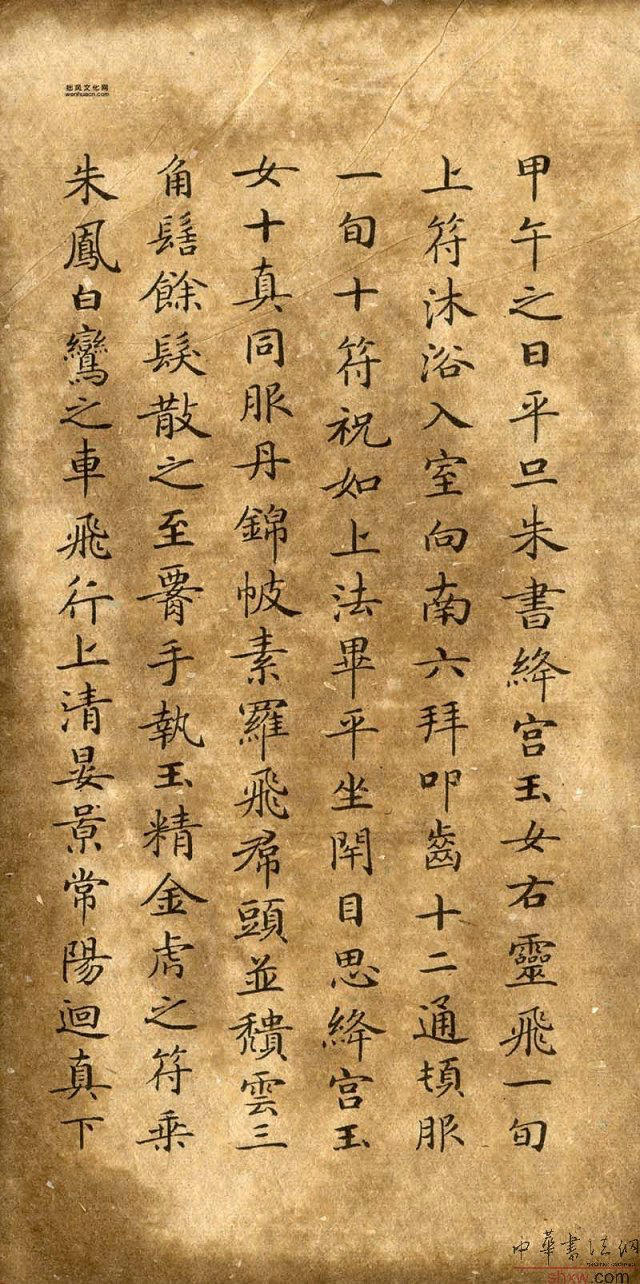 甲午之日平旦朱書絳宮玉女右靈飛一旬
上符沐浴入室向南六拜叩齒十二通頓服
一旬十符祝如上法畢平坐閉目思絳宮玉
女十真同服丹錦帔素羅飛帬頭並頹雲三
角髻餘髮散之至署手執玉精金虎之符乗
朱鳳白鸞之車飛行上清晏景常陽迴真下
拙风文化网
wenhuacn.com
中華書法網
shxw.com